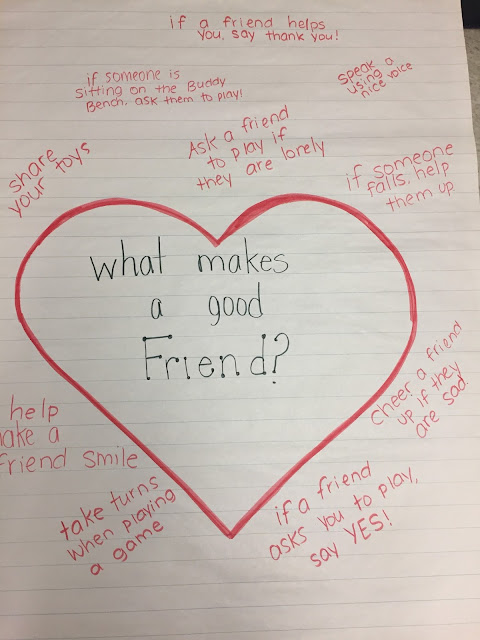 if a friend helps
you, say thank you!
if someone is
sitting on the Buddy
Bench, ask them to play!
Speak
using a
nice voice
Ask a friend
to play if
they are lonely
share
your toys
if someone
falls, help
them up
What makes
a good
Friend?
Cheer a friend
up if they
are sad
help
ake a
riend smile
take turns
when playing
a game
if a friend
asks you to play,
say YES!